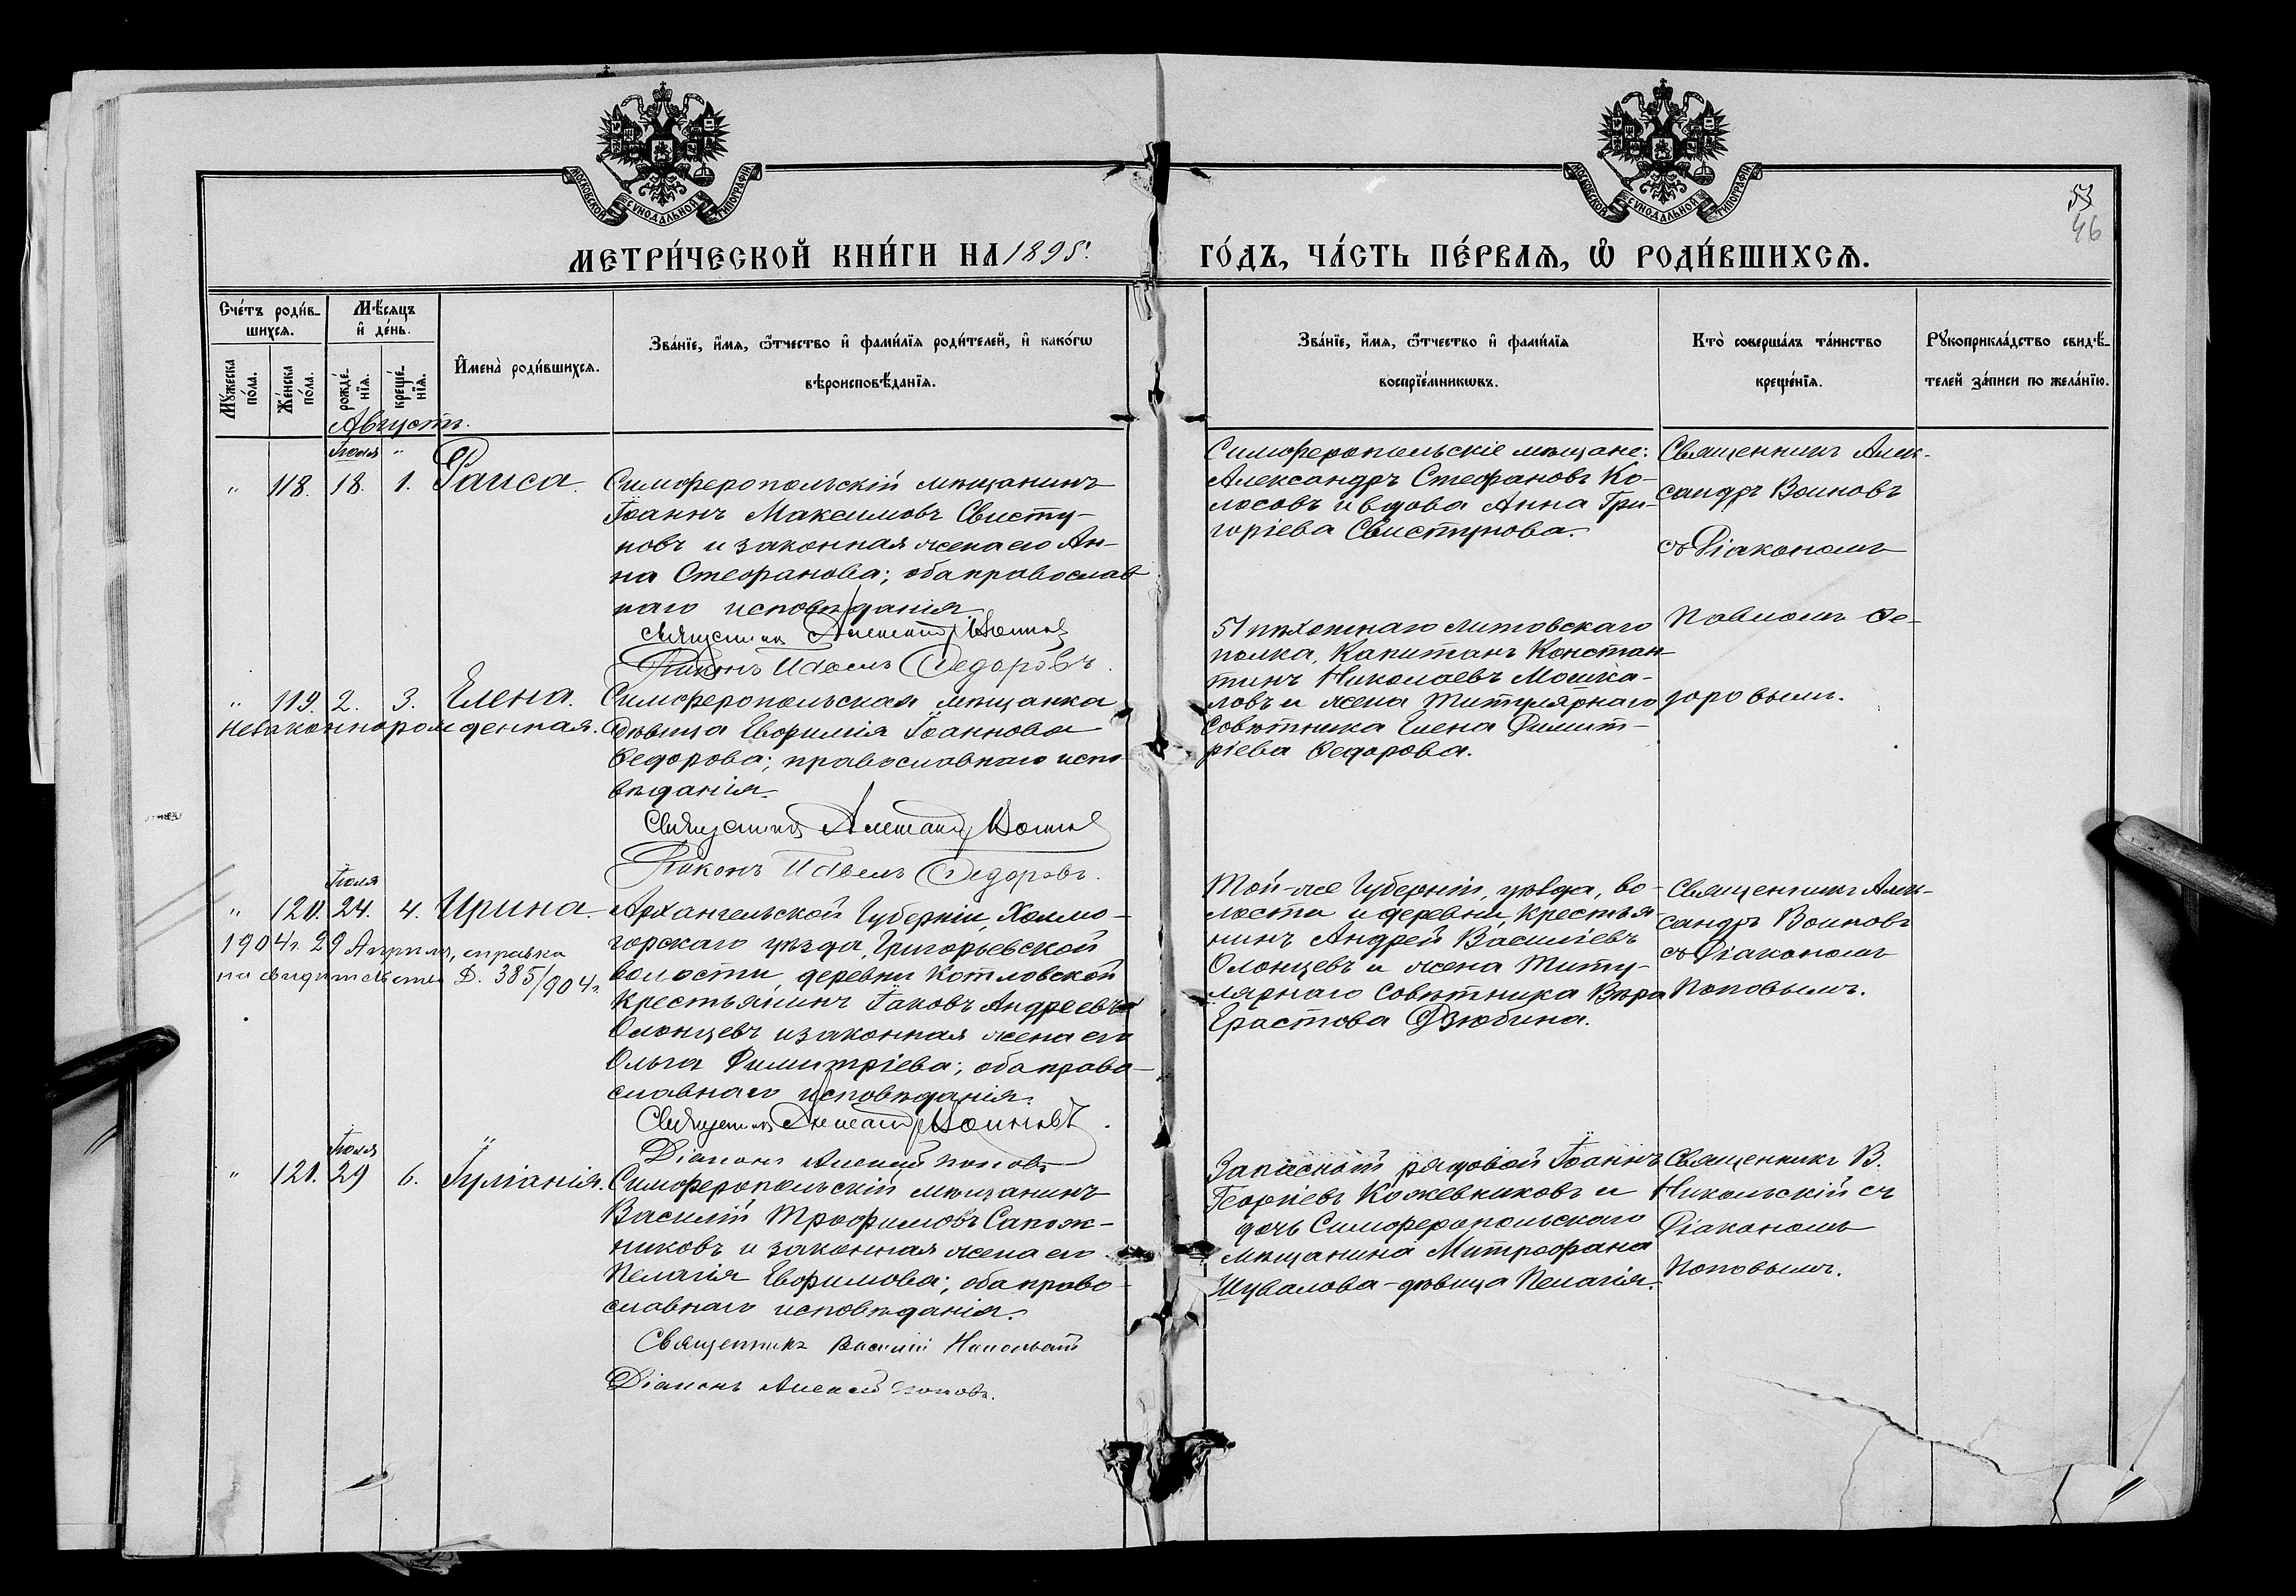 МОСКОВСКОЙ СѴНОДАЛЬНОЙ ТИПОГРАФІИ
МОСКОВСКОЙ СѴНОДАЛЬНОЙ ТИПОГРАФІИ
53
46
МЕТРИ́ЧЕСКОЙ КНИ́ГИ НА 1895.
ГО́ДЪ, ЧА́СТЬ ПЕ́РВАѦ, Ѡ҆ РОДИ́ВШИХСѦ.
Сче́тъ роди́в-
шихсѧ.
Мѣ́сѧцъ
и҆ де́нь.
Мꙋ́жеска
по́ла.
Же́нска
по́ла.
рожде́-
нїѧ.
креще́-
нїѧ.
И҆мена̀ роди́вшихсѧ.
Зва́нїе, и҆́мѧ, ѻ҆́тчество и҆ фами́лїѧ роди́телей, и҆ како́гѡ
вѣроисповѣ́данїѧ.
Зва́нїе, и҆́мѧ, ѻ҆́тчество и҆ фами́лїѧ
воспрїе́мникѡвъ.
Кто̀ соверша́лъ та́инство
креще́нїѧ.
Рꙋкоприкла́дство свидѣ́-
телей за́писи по жела́нїю.
Августъ.
Іюля "
" 118. 18. 1. Раиса.
Симферопольскій мѣщанинъ
Іоаннъ Максимовъ Свисту-
новъ и законная жена его Ан-
на Стефанова; оба православ
наго исповѣданія
Священникъ Александръ Воиновъ
Діаконъ Павелъ Ѳедоровъ.
Симферопольскіе мѣщане:
Александръ Стефановъ Ко-
лосовъ и вдова Анна Гри-
горіева Свистунова.
Священникъ Алек-
сандръ Воиновъ
съ Діакономъ
Павломъ Ѳе-
доровымъ.
" 119. 2. 3. Елена.
Незаконнорожденная.
Симферопольская мѣщанка
дѣвица Евфимія Іоаннова
Ѳедорова; православнаго испо
вѣданія.
Священникъ Александръ Воиновъ
Діаконъ Павелъ Ѳедоровъ.
51 пѣхотнаго Литовскаго
полка, Капитанъ Констан-
тинъ Николаевъ Мошка-
ловъ и жена Титулярнаго
Совѣтника Елена Димит-
ріева Ѳедорова.
Іюля
" 120. 24. 4. Ирина.
1904 г. 29 Апрѣля, справка
на свидѣтельство Д. 385/904 г.
Архангельской Губерніи, Холмо-
горскаго уѣзда, Григорьевской
волости, деревни Котловской
Крестьянинъ Іаковъ Андреевъ
Олонцевъ и законная жена его
Ольга Димитріева; оба право-
славнаго исповѣданія.
Священникъ Александръ Воиновъ.
Діаконъ Алексій Поповъ
Той-же Губерніи, уѣзда, во-
лости и деревни, крестья
нинъ Андрей Василіевъ
Олонцевъ и жена Титу-
лярнаго Совѣтника Вѣра
Ерастова Дзюбина.
Священникъ Алек-
сандръ Воиновъ
съ Діакономъ
Поповымъ.
Іюля
" 121. 29 6. Іуліанія.
Симферопольскій мѣщанинъ
Василій Трофимовъ Сапож-
никовъ и законная жена его
Пелагія Евфимова; оба право-
славнаго исповѣданія.
Священникъ Василій Никольскій
Діаконъ Алексій Поповъ.
Запасной рядовой Іоаннъ
Георгіевъ Кожевниковъ и
дочь Симферопольскаго
мѣщанина Митрофана
Шувалова - дѣвица Пелагія.
Священникъ В.
Никольскій съ
Діакономъ
Поповымъ.